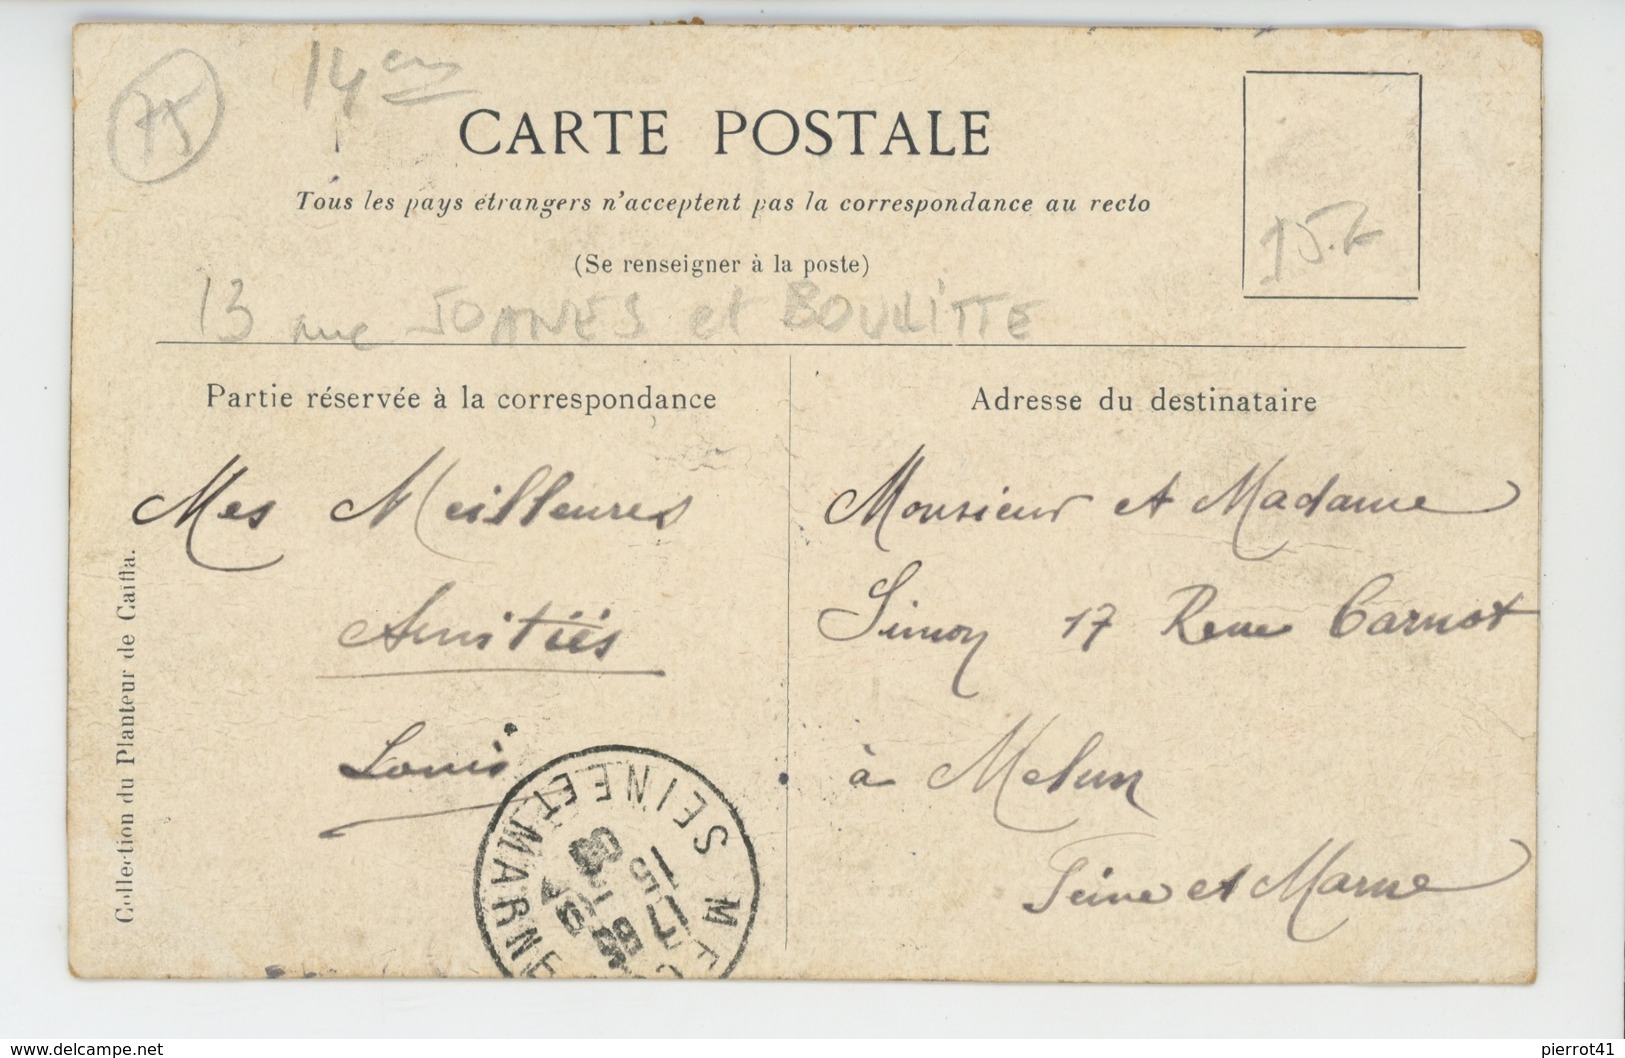 75
14em
CARTE POSTALE
Tous les pays étrangers n'acceptent pas la correspondance au recto
(Se renseigner à la poste)
15.
13 rue JOANES et BOULLITTE
Partie réservée à la correspondance
Mes Meilleures
Amitiés
Louis
Adresse du destinataire
Monsieur et Madame
Simon 17 Rue Carnot
à Melun
Seine et Marne
Collection du Planteur de Caïffa.
SEINE ET MARNE
delcampe.net
pierrot41